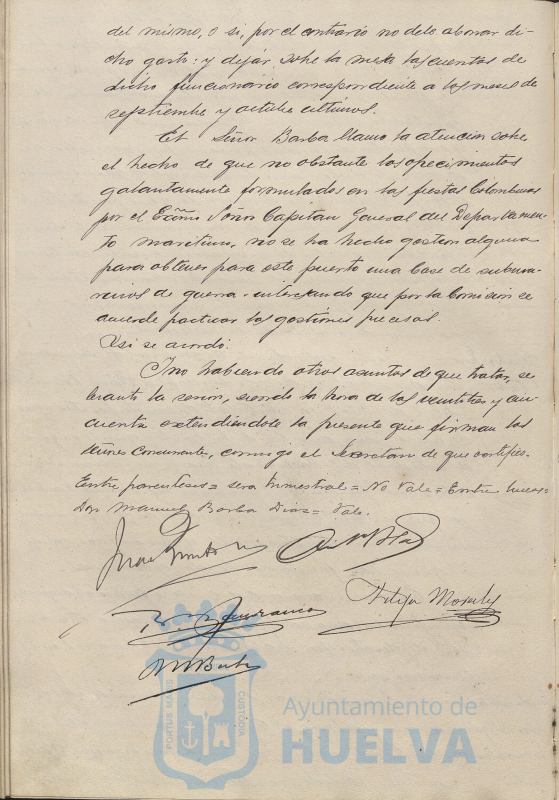 del mismo, o si, por el contrario no debe abonar di-
cho gasto: y dejar sobre la mesa las cuentas de
dicho funcionario correspondiente a los meses de
septiembre y octubre últimos.
El Señor Barba llamó la atención sobre
el hecho de que no obstante los ofrecimientos
galantemente formulados en las fiestas Colombinas
por el Excmo Señor Capitan General del Departamen-
to maritimo, no se ha hecho gestion alguna
para obtener para este puerto una base de subma-
rinos de guerra, interesando que por la Comision se
acuerde practicar las gestiones precisas.
Asi se acordó.
Y no habiendo otros asuntos de que tratar, se
levantó la sesion, siendo la hora de las veintitres y cin-
cuenta extendiendose la presente que firman los
señores concurrentes, conmigo el Secretario de que certifico.
Entre parentesis = sera trimestral = No Vale = Entre lineas =
Don Manuel Barba Diaz = Vale.
Felipe Morales
M Barba
PORTUS MARIS CUSTODIA
Ayuntamiento de
HUELVA